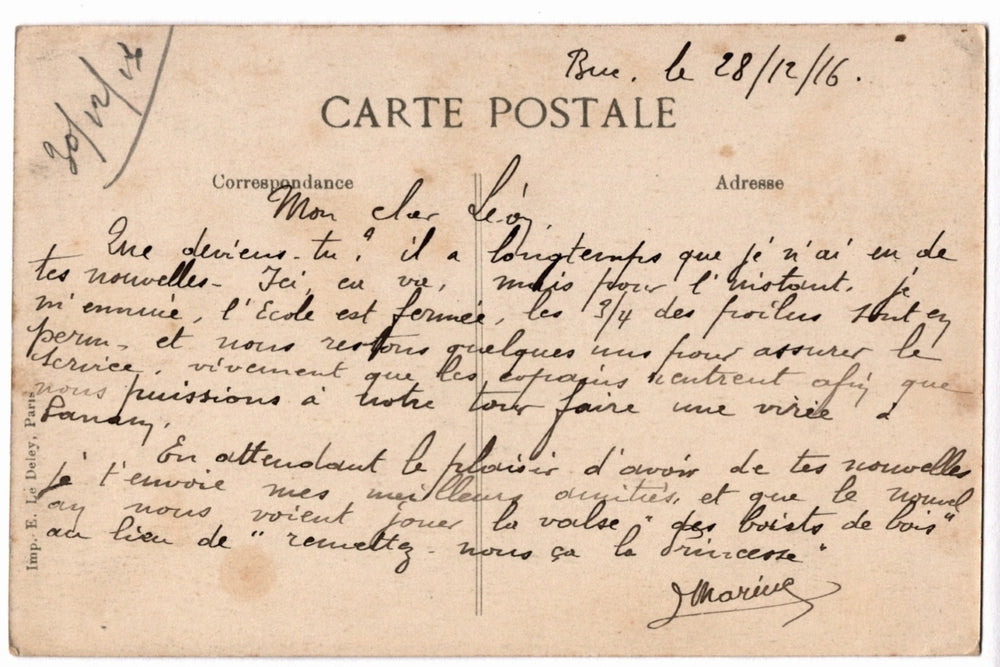 30/12/16
Buc. le 28/12/16.
CARTE POSTALE
Correspondance
Adresse
Mon cher Léon,
Que deviens-tu? il a longtemps que je n'ai eu de
tes nouvelles - Ici, ça va, mais pour l'instant, je
m'ennuie, l'Ecole est fermée, les 3/4 des poilus sont en
perm - et nous restons quelques uns pour assurer le
service, vivement que les copains rentrent afin que
nous puissions à notre tour faire une virée à
Panam,
En attendant le plaisir d'avoir de tes nouvelles
je t'envoie mes meilleurs amitiés, et que le nouvel
an nous voient jouer la valse "des boists de bois"
au lieu de "remettez-nous ça la Princesse"
Marius
Imp. E. Le Deley, Paris